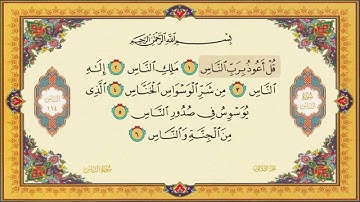 بِسْمِ اللَّهِ الرَّحْمَٰنِ الرَّحِيمِ
قُلْ أَعُوذُ بِرَبِّ النَّاسِ ١ مَلِكِ النَّاسِ ٢ إِلَٰهِ
النَّاسِ ٣ مِن شَرِّ الْوَسْوَاسِ الْخَنَّاسِ ٤ الَّذِي
يُوَسْوِسُ فِي صُدُورِ النَّاسِ ٥
مِنَ الْجِنَّةِ وَالنَّاسِ ٦
١١٤
سُورَةُ النَّاسِ